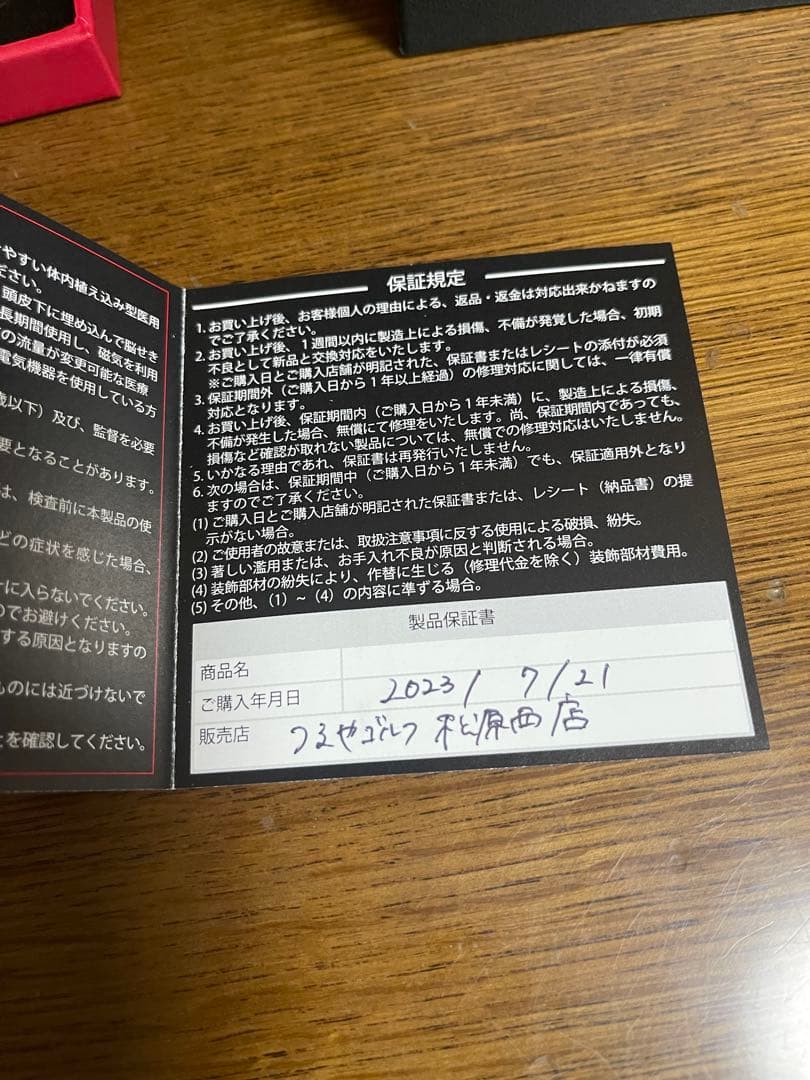 やすい体内植え込み型医用
ださい。
頭皮下に埋め込んで脳せき
長期間使用し、磁気を利用
の流量が変更可能な医療
電気機器を使用している方
歳以下）及び、監督を必要
要となることがあります。
は、検査前に本製品の使
どの症状を感じた場合、
に入らないでください。
のでお避けください。
する原因となりますの
ものには近づけないで
とを確認してください。
保証規定
1. お買い上げ後、お客様個人の理由による、返品・返金は対応出来かねますの
でご了承ください。
2. お買い上げ後、1週間以内に製造上による損傷、不備が発覚した場合、初期
不良として新品と交換対応をいたします。
※ご購入日とご購入店舗が明記された、保証書またはレシートの添付が必須
3. 保証期間外（ご購入日から1年以上経過）の修理対応に関しては、一律有償
対応となります。
4. お買い上げ後、保証期間内（ご購入日から1年未満）に、製造上による損傷、
不備が発生した場合、無償にて修理をいたします。尚、保証期間内であっても、
損傷など確認が取れない製品については、無償での修理対応はいたしません。
5. いかなる理由であれ、保証書は再発行いたしません。
6. 次の場合は、保証期間中（ご購入日から1年未満）でも、保証適用外となり
ますのでご了承ください。
(1) ご購入日とご購入店舗が明記された保証書または、レシート（納品書）の提
示がない場合。
(2) ご使用者の故意または、取扱注意事項に反する使用による破損、紛失。
(3) 著しい濫用または、お手入れ不良が原因と判断される場合。
(4) 装飾部材の紛失により、作替に生じる（修理代金を除く）装飾部材費用。
(5) その他、（1）～（4）の内容に準ずる場合。
製品保証書
商品名
ご購入年月日 2023/ 7/21
販売店 つるやゴルフ 松原西店